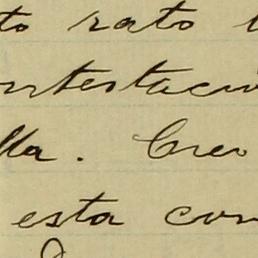 to rato
ntestació
lla. Creo
esta con